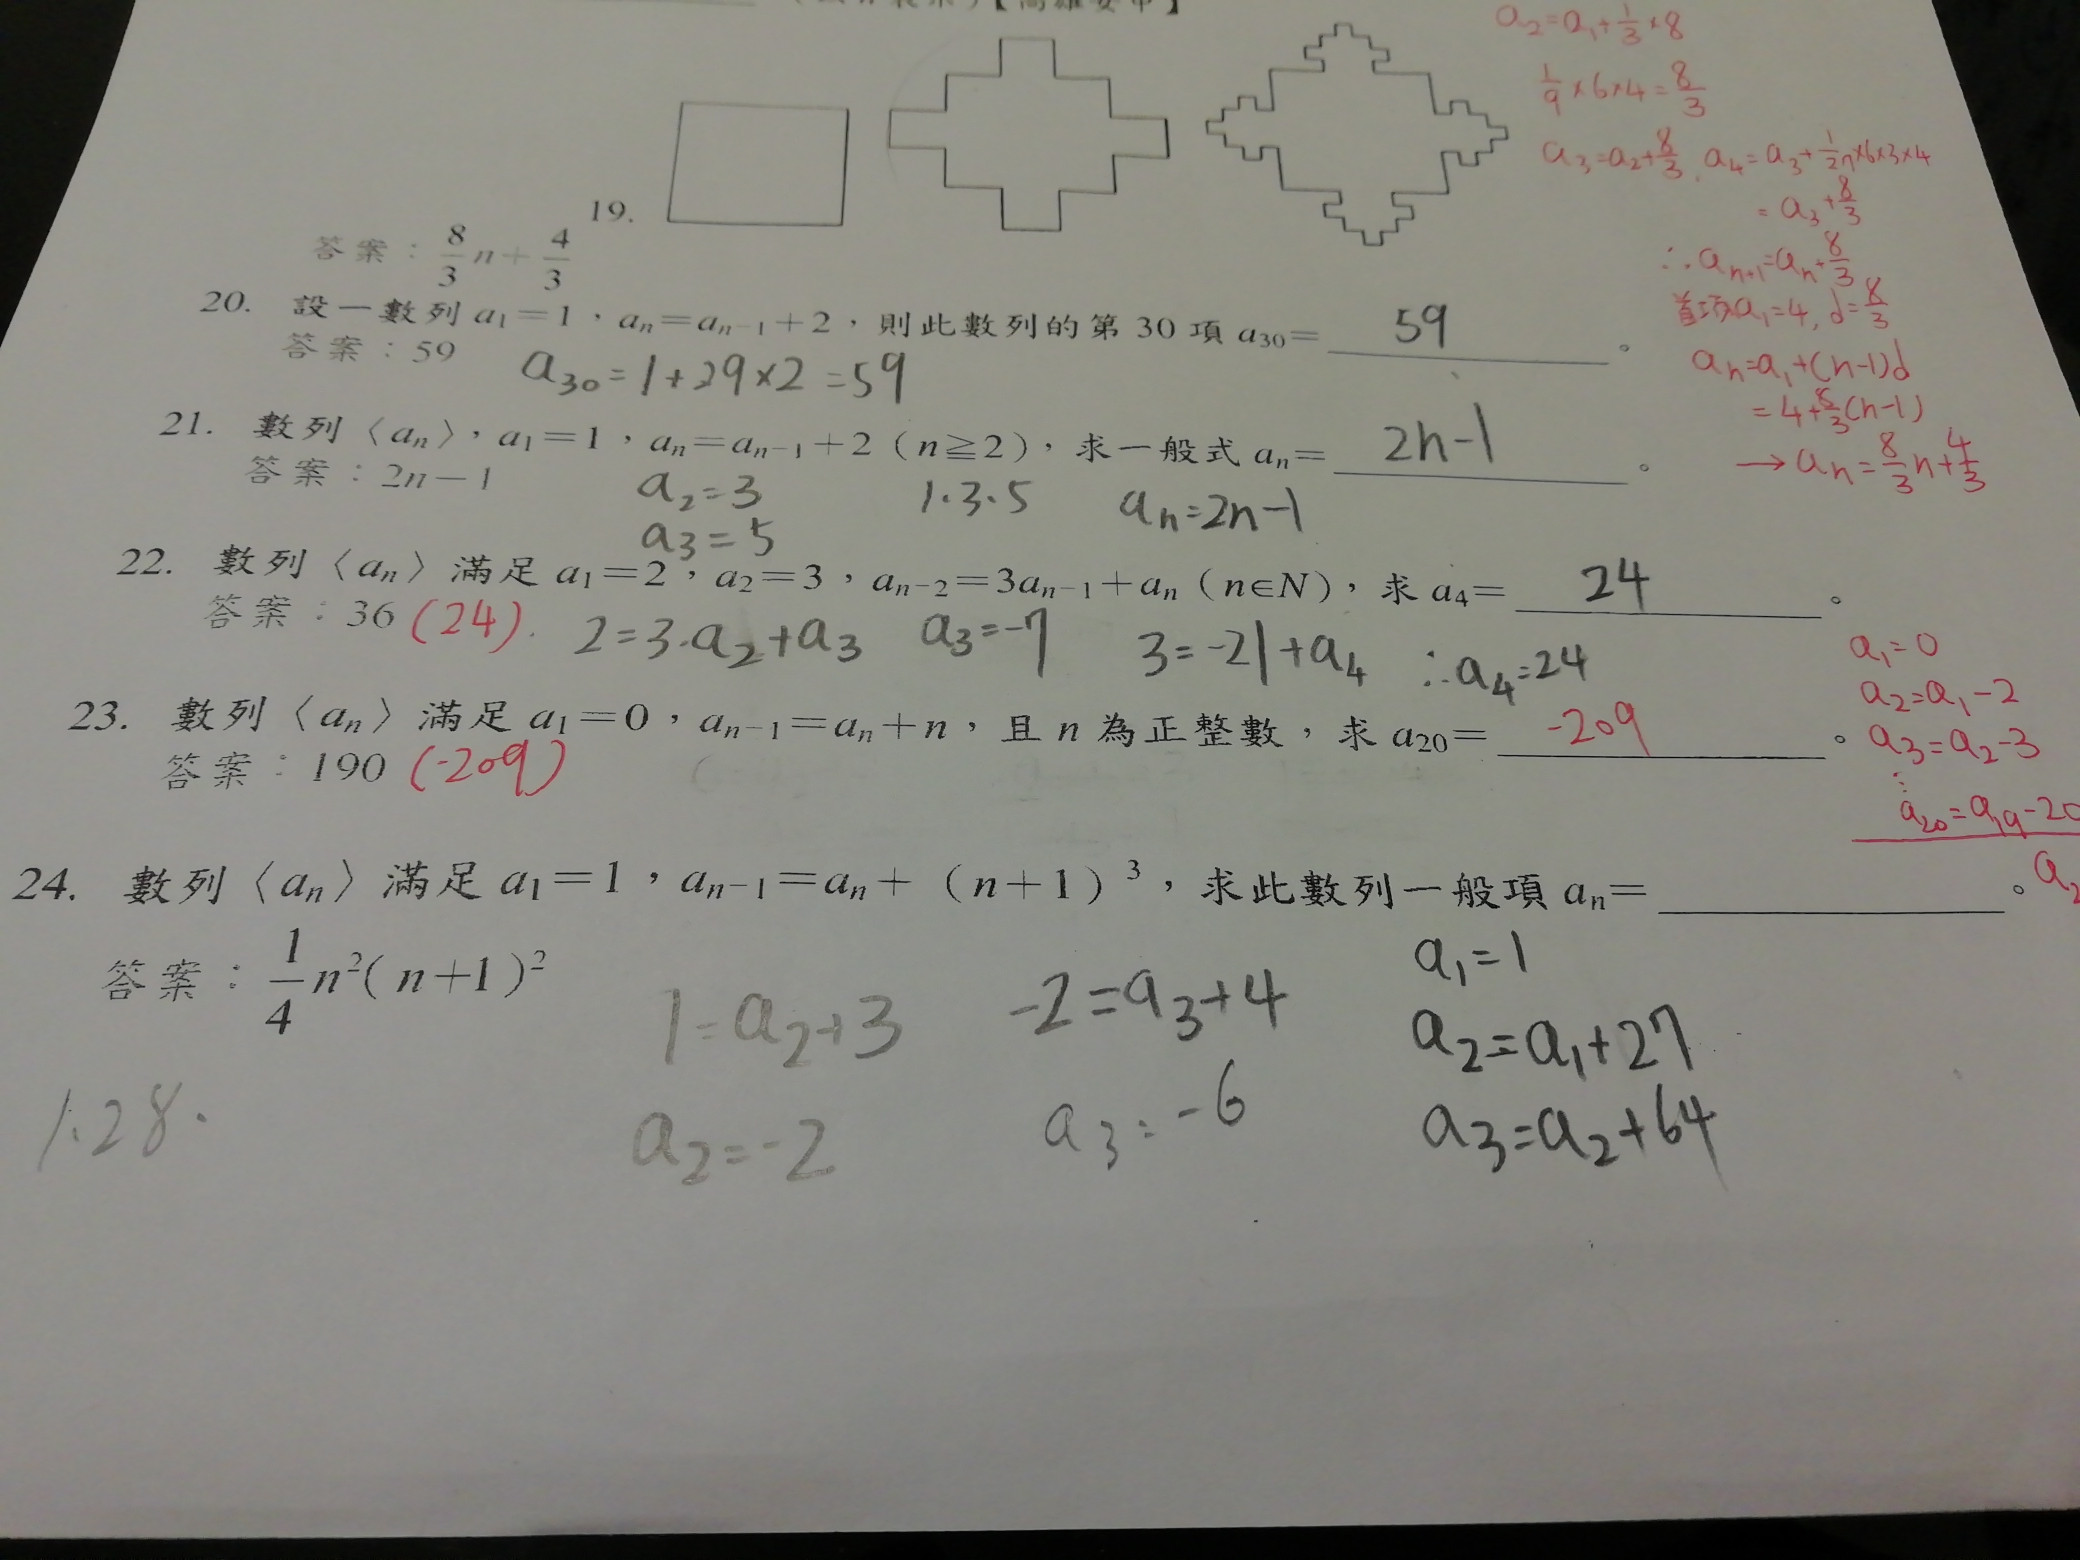 【高雄安中】
a₂=a₁+1/3×8
1/9×6×4=8/3
a₃=a₂+8/3, a₄=a₃+1/27×6×3×4
=a₃+8/3
∴aₙ₊₁=aₙ+8/3
首項a₁=4, d=8/3
aₙ=a₁+(n-1)d
=4+8/3(n-1)
→aₙ=8/3n+4/3
19.
答案：8/3n+4/3
20. 設一數列 a₁=1，aₙ=aₙ₋₁+2，則此數列的第 30 項 a₃₀= 59 。
答案：59
a₃₀=1+29×2=59
21. 數列〈aₙ〉，a₁=1，aₙ=aₙ₋₁+2（n≧2），求一般式 aₙ= 2n-1 。
答案：2n-1
a₂=3 1.3.5 aₙ=2n-1
a₃=5
22. 數列〈aₙ〉滿足 a₁=2，a₂=3，aₙ₋₂=3aₙ₋₁+aₙ（n∈N），求 a₄= 24 。
答案：36 (24).
2=3·a₂+a₃ a₃=-7 3=-21+a₄ ∴a₄=24
23. 數列〈aₙ〉滿足 a₁=0，aₙ₋₁=aₙ+n，且 n 為正整數，求 a₂₀= -209 。
答案：190 (-209)
a₁=0
a₂=a₁-2
a₃=a₂-3
⋮
a₂₀=a₁₉-20
a₂
24. 數列〈aₙ〉滿足 a₁=1，aₙ₋₁=aₙ+（n+1）³，求此數列一般項 aₙ= 。
答案：1/4n²(n+1)²
1=a₂+3 -2=a₃+4 a₁=1
a₂=-2 a₃=-6 a₂=a₁+27
1.28. a₃=a₂+64